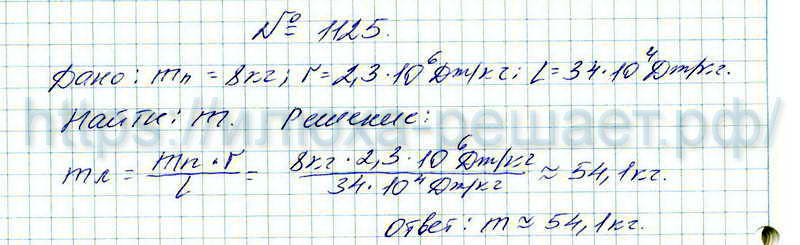 № 1125.
Дано: mп = 8кг; r = 2,3·10⁶Дж/кг; L = 34·10⁴Дж/кг.
Найти: m. Решение:
mл = mп·r / L = 8кг·2,3·10⁶Дж/кг / 34·10⁴Дж/кг ≈ 54,1кг.
Ответ: m ≈ 54,1кг.